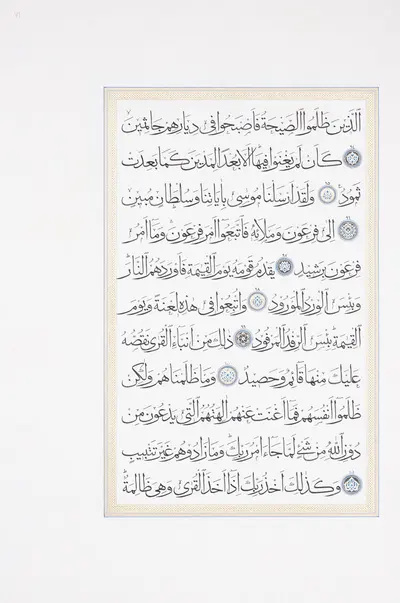 الذين ظلموا الصيحة فأصبحوا في ديارهم جاثمين
كأن لم يغنوا فيها ألا بعدا لمدين كما بعدت
ثمود ولقد أرسلنا موسى بآياتنا وسلطان مبين
إلى فرعون وملائه فاتبعوا أمر فرعون وما أمر
فرعون برشيد يقدم قومه يوم القيمة فأوردهم النار
وبئس الورد المورود وأتبعوا في هذه لعنة ويوم
القيمة بئس الرفد المرفود ذلك من أنباء القرى نقصه
عليك منها قائم وحصيد وما ظلمناهم ولكن
ظلموا أنفسهم فما أغنت عنهم آلهتهم التي يدعون من
دون الله من شيء لما جاء أمر ربك وما زادوهم غير تتبيب
وكذلك أخذ ربك إذا أخذ القرى وهي ظالمة